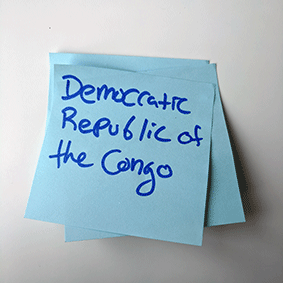 Democratic
Republic of
the Congo